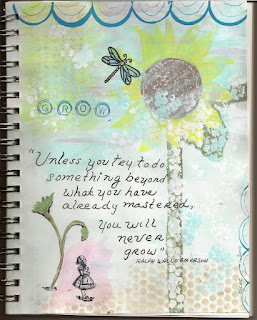 GROW
"Unless you try to do
something beyond
what you have
already mastered,
you will
never
grow"
RALPH WALDO EMERSON